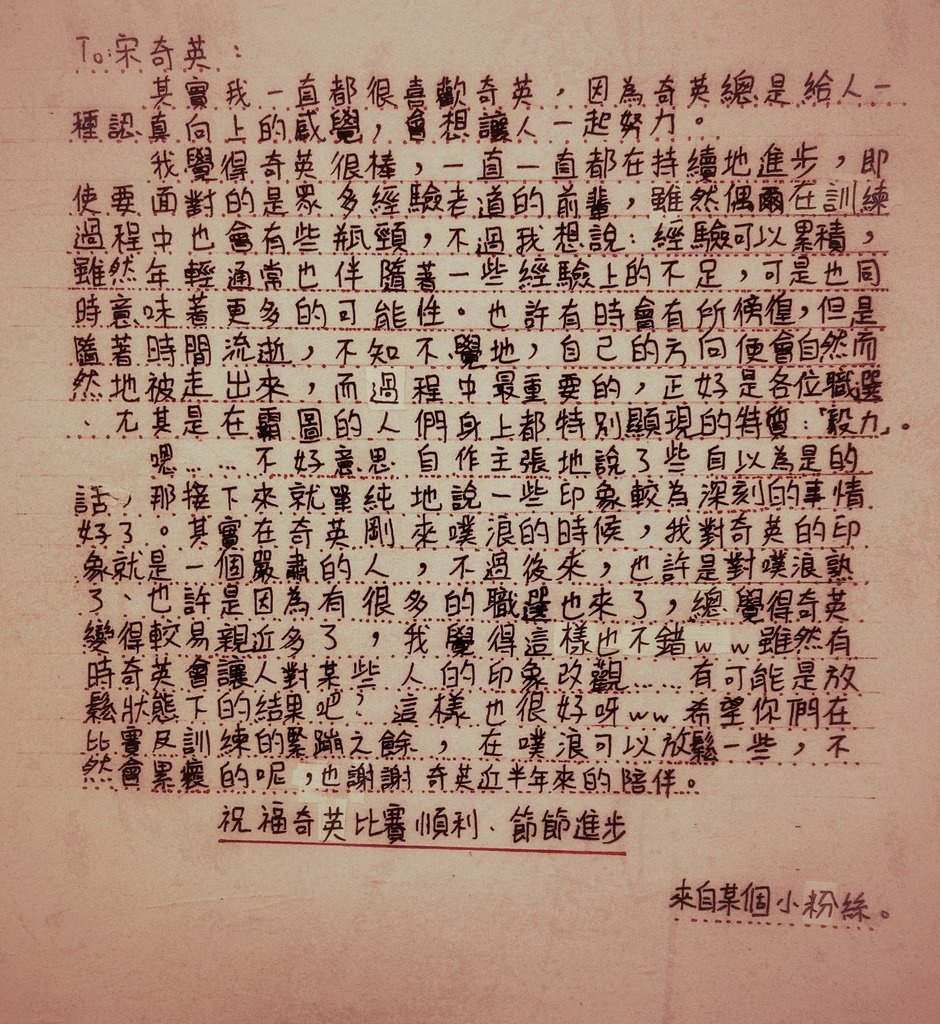 To:宋奇英:
其實我一直都很喜歡奇英,因為奇英總是給人一
種認真向上的感覺,會想讓人一起努力。
我覺得奇英很棒,一直一直都在持續地進步,即
使要面對的是眾多經驗老道的前輩,雖然偶爾在訓練
過程中也會有些瓶頸,不過我想說:經驗可以累積,
雖然年輕通常也伴隨著一些經驗上的不足,可是也同
時意味著更多的可能性。也許有時會有所徬徨,但是
隨著時間流逝,不知不覺地,自己的方向便會自然而
然地被走出來,而過程中最重要的,正好是各位職選
、尤其是在霸圖的人們身上都特別顯現的特質:「毅力」。
嗯……不好意思自作主張地說了些自以為是的
話,那接下來就單純地說一些印象較為深刻的事情
好了。其實在奇英剛來噗浪的時候,我對奇英的印
象就是一個嚴肅的人,不過後來,也許是對噗浪熟
了、也許是因為有很多的職選也來了,總覺得奇英
變得較易親近多了,我覺得這樣也不錯ww雖然有
時奇英會讓人對某些人的印象改觀……有可能是放
鬆狀態下的結果吧?這樣也很好呀ww希望你們在
比賽及訓練的緊蹦之餘,在噗浪可以放鬆一些,不
然會累癱的呢,也謝謝奇英近半年來的陪伴。
祝福奇英比賽順利、節節進步
來自某個小粉絲。